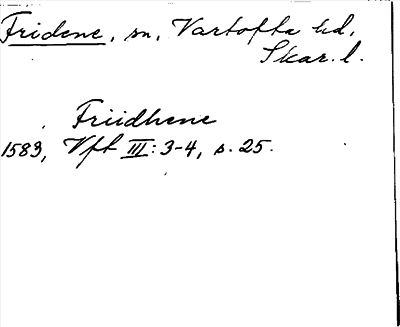 Fridene, sn, Vartofta hd,
Skar. l.
Friidhene
1583, Vft III: 3-4, s. 25.